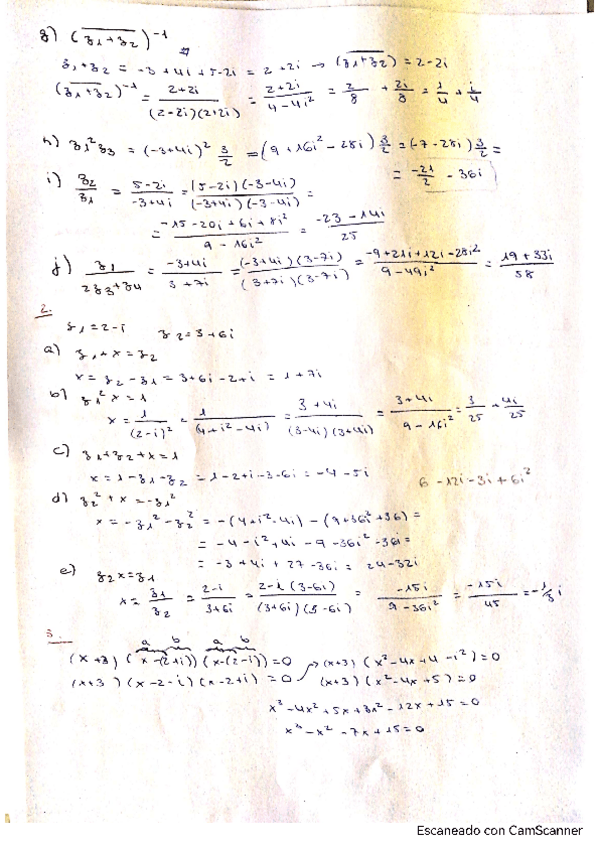 g) (z̅₁+̅z̅₂)⁻¹
z₁+z₂ = -3+4i+5-2i = 2+2i → (z̅₁+̅z̅₂) = 2-2i
(z̅₁+̅z̅₂)⁻¹ = (2+2i)/((2-2i)(2+2i)) = (2+2i)/(4-4i²) = 2/8 + 2i/8 = 1/4 + i/4
h) z₁²z₃ = (-3+4i)² 3/2 = (9+16i²-28i) 3/2 = (-7-28i) 3/2 =
= -21/2 - 36i
i) z₂/z₁ = (5-2i)/(-3+4i) = ((5-2i)(-3-4i))/((-3+4i)(-3-4i)) =
= (-15-20i+6i+8i²)/(9-16i²) = (-23-14i)/25
j) z₁/(2z₃+z₄) = (-3+4i)/(3+7i) = ((-3+4i)(3-7i))/((3+7i)(3-7i)) = (-9+21i+12i-28i²)/(9-49i²) = (19+33i)/58
2.
z₁=2-i z₂=3+6i
a) z₁+x=z₂
x = z₂-z₁ = 3+6i-2+i = 1+7i
b) z₁²x=1
x = 1/(2-i)² = 1/(4+i²-4i) = (3+4i)/((3-4i)(3+4i)) = (3+4i)/(9-16i²) = 3/25 + 4i/25
c) z₁+z₂+x=1
x = 1-z₁-z₂ = 1-2+i-3-6i = -4-5i
6-12i-3i+6i²
d) z₂²+x=-z₁²
x = -z₁²-z₂² = -(4+i²-4i) - (9+36i²+36) =
= -4-i²+4i-9-36i²-36i =
= -3+4i+27-36i = 24-32i
e) z₂x=z₁
x = z₁/z₂ = (2-i)/(3+6i) = (2-i(3-6i))/((3+6i)(3-6i)) = -15i/(9-36i²) = -15i/45 = -1/3 i
3.
a b a b
(x+3)(x-(2+i))(x-(2-i))=0 → (x+3)(x²-4x+4-i²)=0
(x+3)(x-2-i)(x-2+i)=0 (x+3)(x²-4x+5)=0
x³-4x²+5x+3x²-12x+15=0
x³-x²-7x+15=0
Escaneado con CamScanner